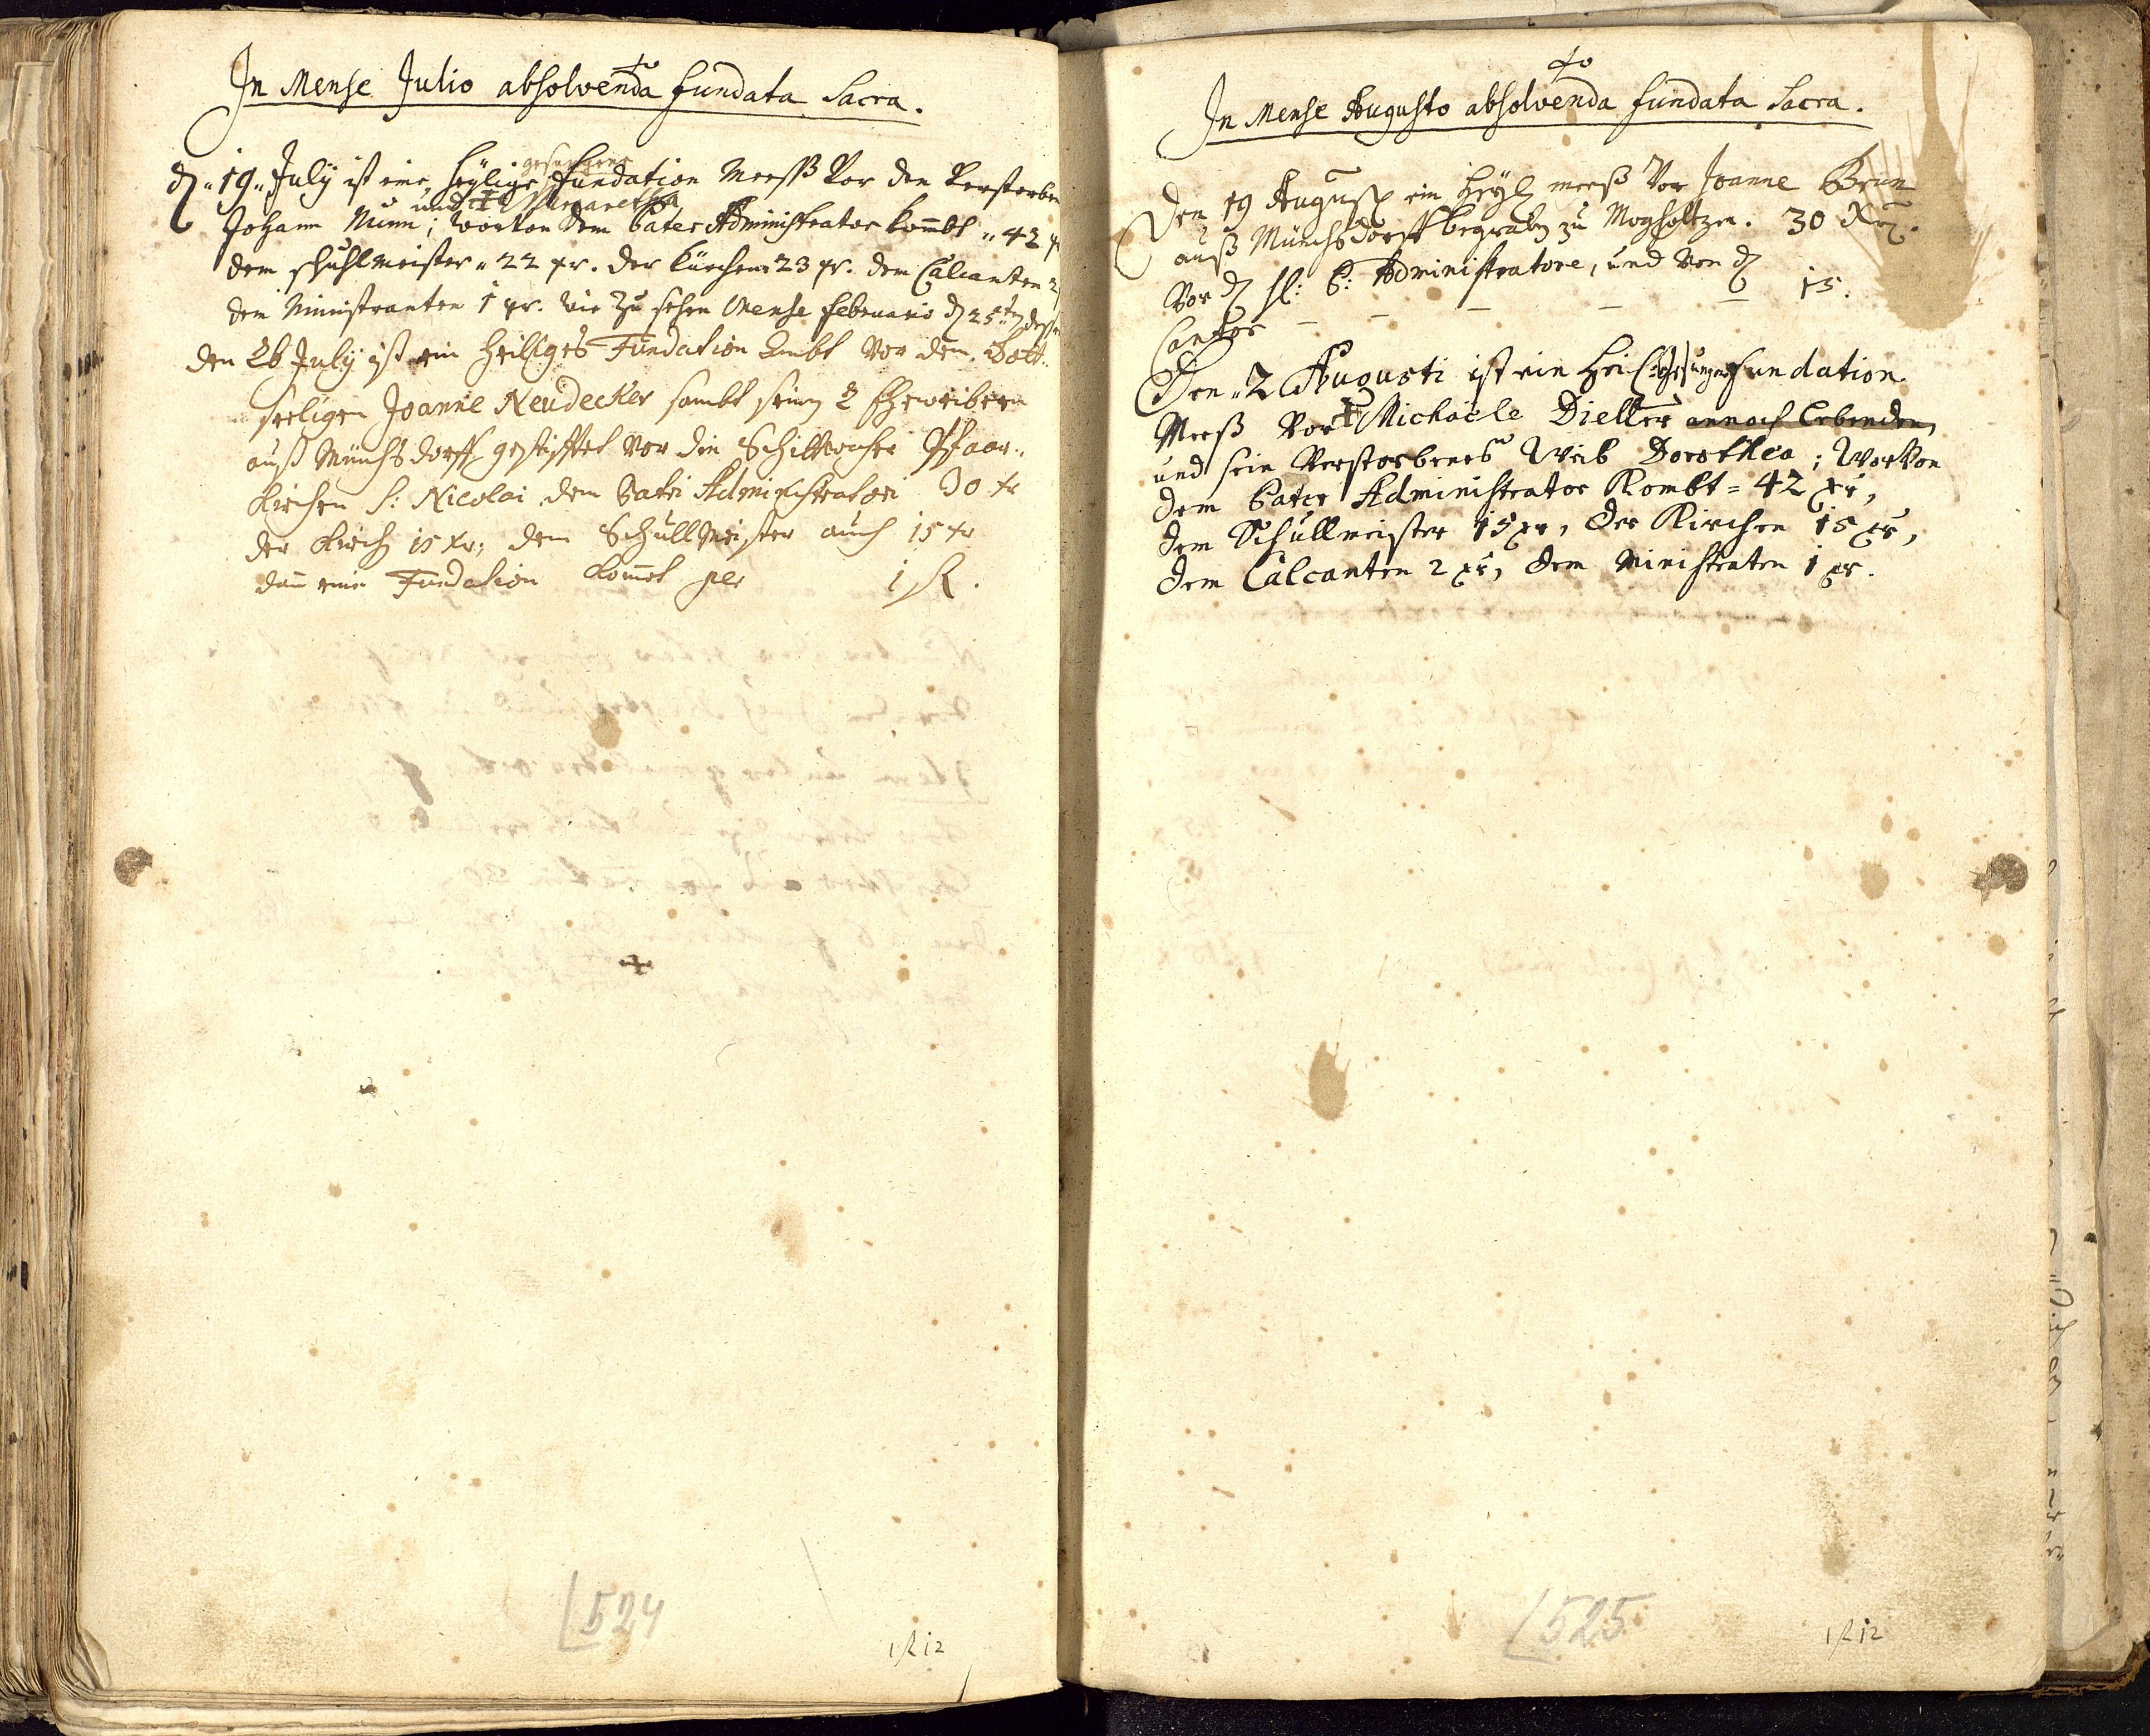 In Mense Julio absolvenda fundata Sacra.
d. 19. July ist eine Heylige gesungene Fundation Meeß vor den verstorbe
Johann Nunn und Margaretha; wovon dem Pater Administrator kombt 42
dem schuhlmeister 22 xr. der Kürchen 23 xr. dem Calcanten 2
dem Ministranten 1 xr. wie zu sehen Mense Februario d 25ten
den 26 July ist ein heiliges Fundation Ambt vor den Gott
seeligen Joanne Neudecker sambt seinen 2 Eheweibern
auß Münchsdorff gestifftet vor die Schiltwocher Pfaar
Kirchen S: Nicolai dem Patri Administratori 30 xr
der Kirch 15 xr; dem Schullmeister auch 15 xr
dan eine Fundation komet per 1 fl.
524
1 fl 12
In Mense Augusto absolvenda fundata Sacra.
Den 19 August ein Heyl meeß vor Joanne Brun
auß Münchsdorff begraben zu Mogholtzen. 30
Vor d H: P: Administratore, und von d
Cantor — — — — 15.
Den 2 Augusti ist ein Heil: gesungene Fundation
Meeß vor Michaële Dieller annoch lebenden
und sein verstorbenes Weib Dorothea; wovon
dem Pater Administrator Kombt = 42 xr,
dem Schullmeister 15 xr, der Kirchen 15 xr,
dem Calcanten 2 xr, dem Ministraten 1 xr.
525
1 fl 12